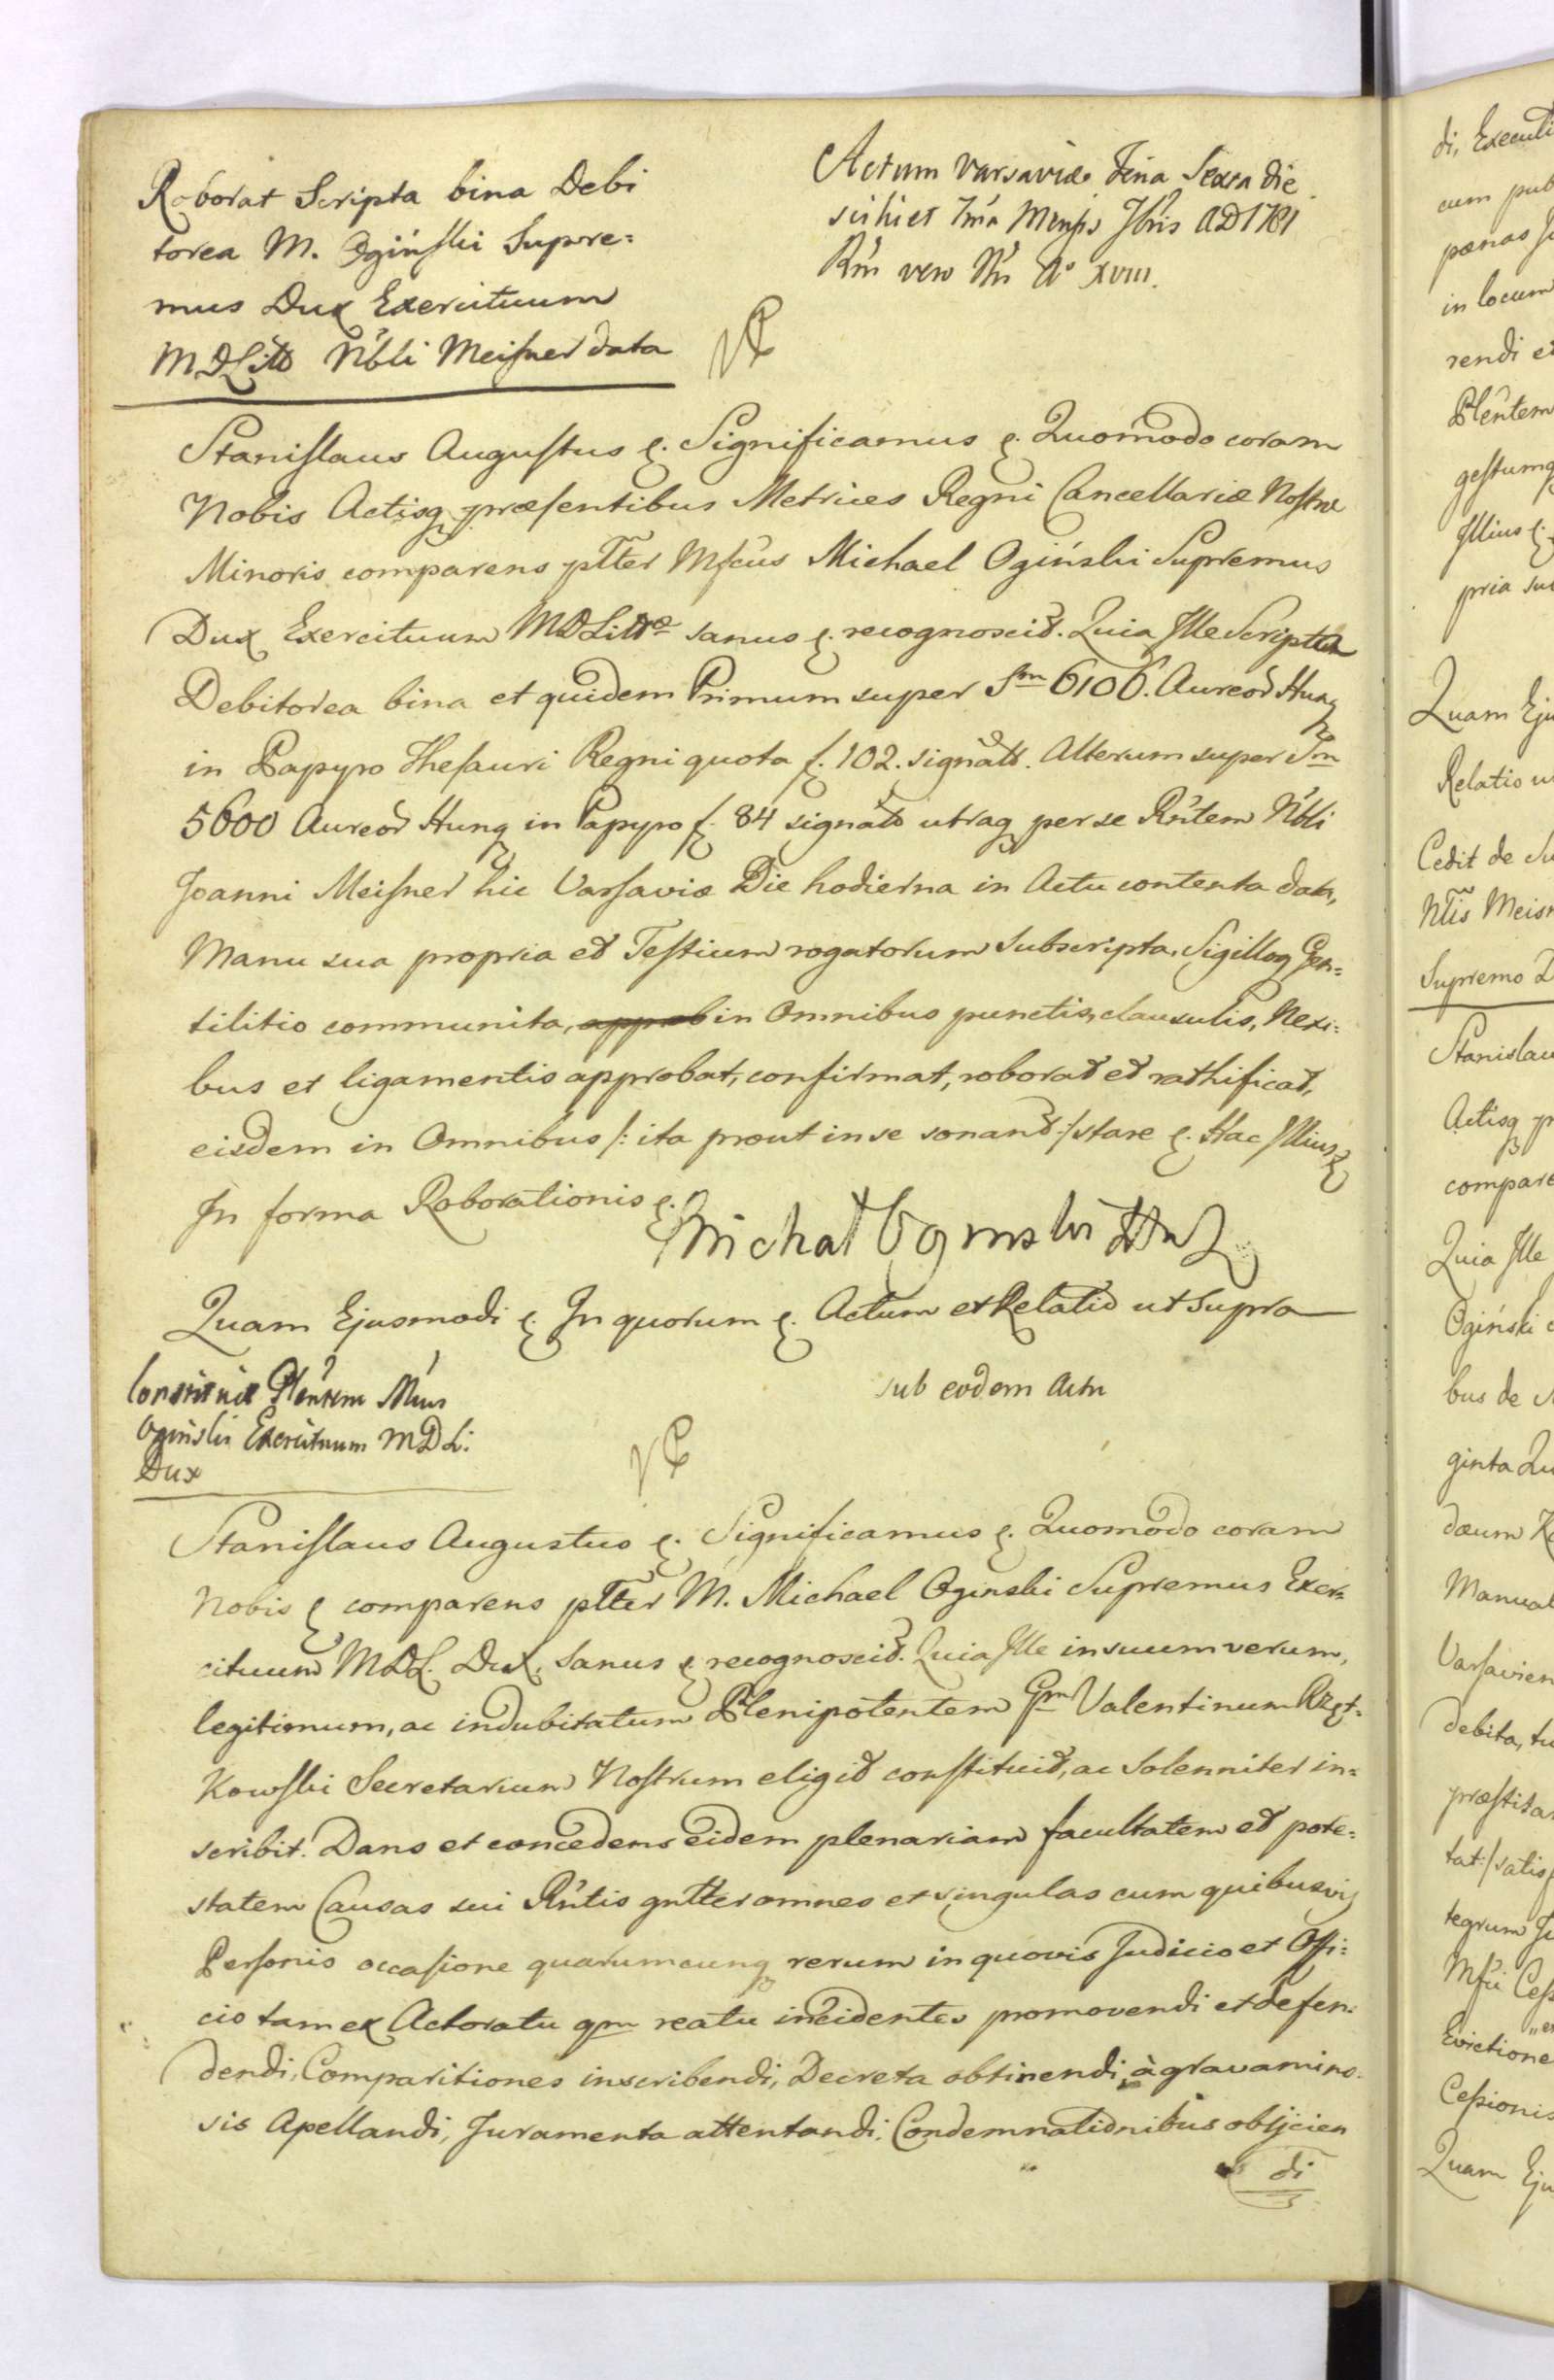 Roborat Scripta bina Debi
torea M. Ogiński Supre=
mus Dux Exercituum
MDLitt Nbli Meisner data
Actum Varsaviæ Fêria Sexta die
scilicet 7ma Mensis 7bris AD 1781
Rni vero Nri Ao XVIII.
Stanislaus Augustus &. Significamus &. Quomodo coram
Nobis Actisq præsentibus Metrices Regni Cancellariæ Nostræ
Minoris comparens plter Mfcus Michael Ogiński Supremus
Dux Exercituum MDLittæ sanus &. recognoscit. Quia Ille Scripta
Debitorea bina et quidem Primum super Sm 6106. Aureor Hung
in Papyro Thesauri Regni quota f. 102. signato. Alterum super Sm
5600 Aureor Hung in Papyro f. 84 signato utraq per se Rntem Nbli
Joanni Meisner hic Varsaviæ Die hodierna in Actu contenta data,
Manu sua propria et Testium rogatorum subscripta, Sigilloq Gen=
tilitio communita, approb in Omnibus punctis, clausulis, Nexi=
bus et ligamentis approbat, confirmat, roborat et rathificat,
eisdem in Omnibus /: ita prout in se sonant :/ stare &. Hac Illius &
In forma Roborationis &.
Michał Oginski HWL
Quam Ejusmodi &. In quorum &. Actum et Relatio ut supra
Constituit Plentem Mcus
Oginski Exercituum MDL:
Dux
sub eodem Actu
Stanislaus Augustus &. Significamus &. Quomodo coram
Nobis & comparens plter M. Michael Oginski Supremus Exer=
cituum MDL. Dux, sanus & recognoscit. Quia Ille in suum verum,
legitimum, ac indubitatum Plenipotentem Gm Valentinum Rzęt=
kowski Secretarium Nostrum eligit constituit, ac solenniter in=
scribit. Dans et concedens eidem plenariam facultatem et pote=
statem Causas sui Rntis gntter omnes et singulas cum quibusvis
Personis occasione quarumcunq rerum in quovis Judicio et Offi=
cio tam ex Actoratu qm reatu incidentes promovendi et defen=
dendi, Comparitiones inscribendi, Decreta obtinendi, à gravamino=
sis Apellandi, Juramenta attentandi, Condemnationibus objicien
di
di, Executi
cum pub
pænas
in locum
rendi
Plentem
gestumq
Illius &.
pria su
Quam Eju
Relatio u
Cedit de Su
Ntis Meisn
Supremo D
Stanislau
Actisq p
compare
Quia Ille
Ogiński
bus de
ginta Qu
dæum
Manual
Varsavien
debita, tu
præstita
tat :/ satis
tegrum Ju
Mfci Cess
Evictione
Cessionis
Quam Eju